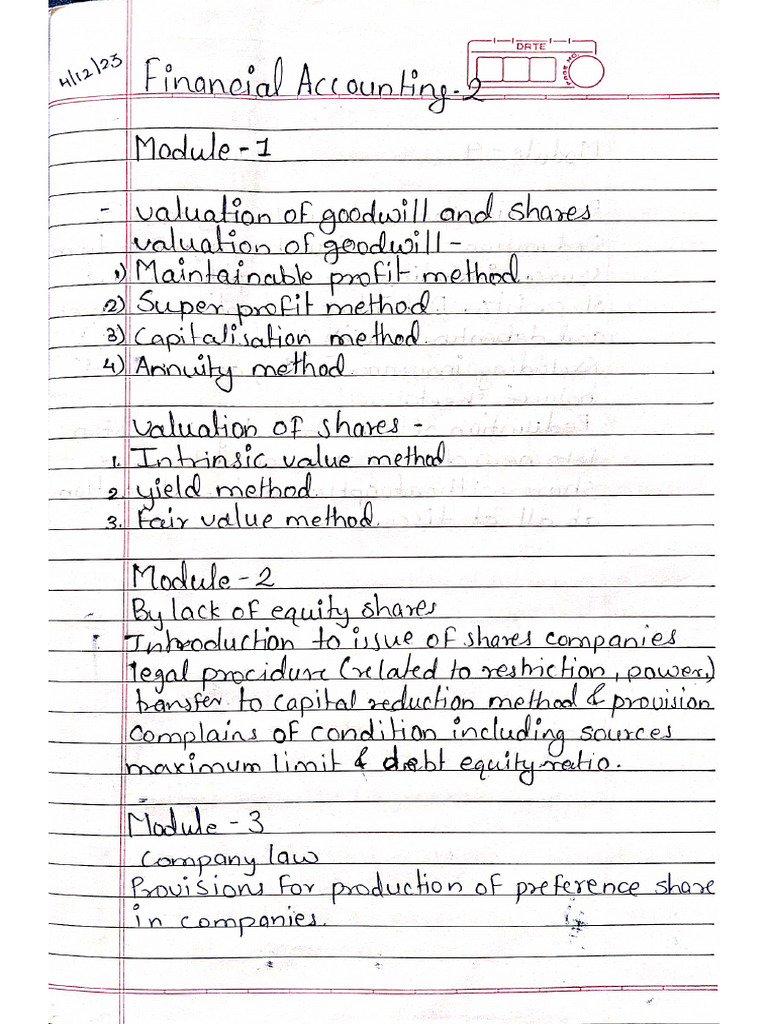 4/12/23
DATE
PAGE NO.
Financial Accounting-2
Module-1
- valuation of goodwill and shares
valuation of goodwill-
1) Maintainable profit method.
2) Super profit method.
3) Capitalisation method.
4) Annuity method.
valuation of shares-
1. Intrinsic value method
2. yield method
3. Fair value method.
Module-2
- By lack of equity shares
Introduction to issue of shares companies
legal procidure (related to restriction, power,)
transfer to capital reduction method & provision
complains of condition including sources
maximum limit & debt equity ratio.
Module-3
Company law
Provisions for production of preference share
in companies.